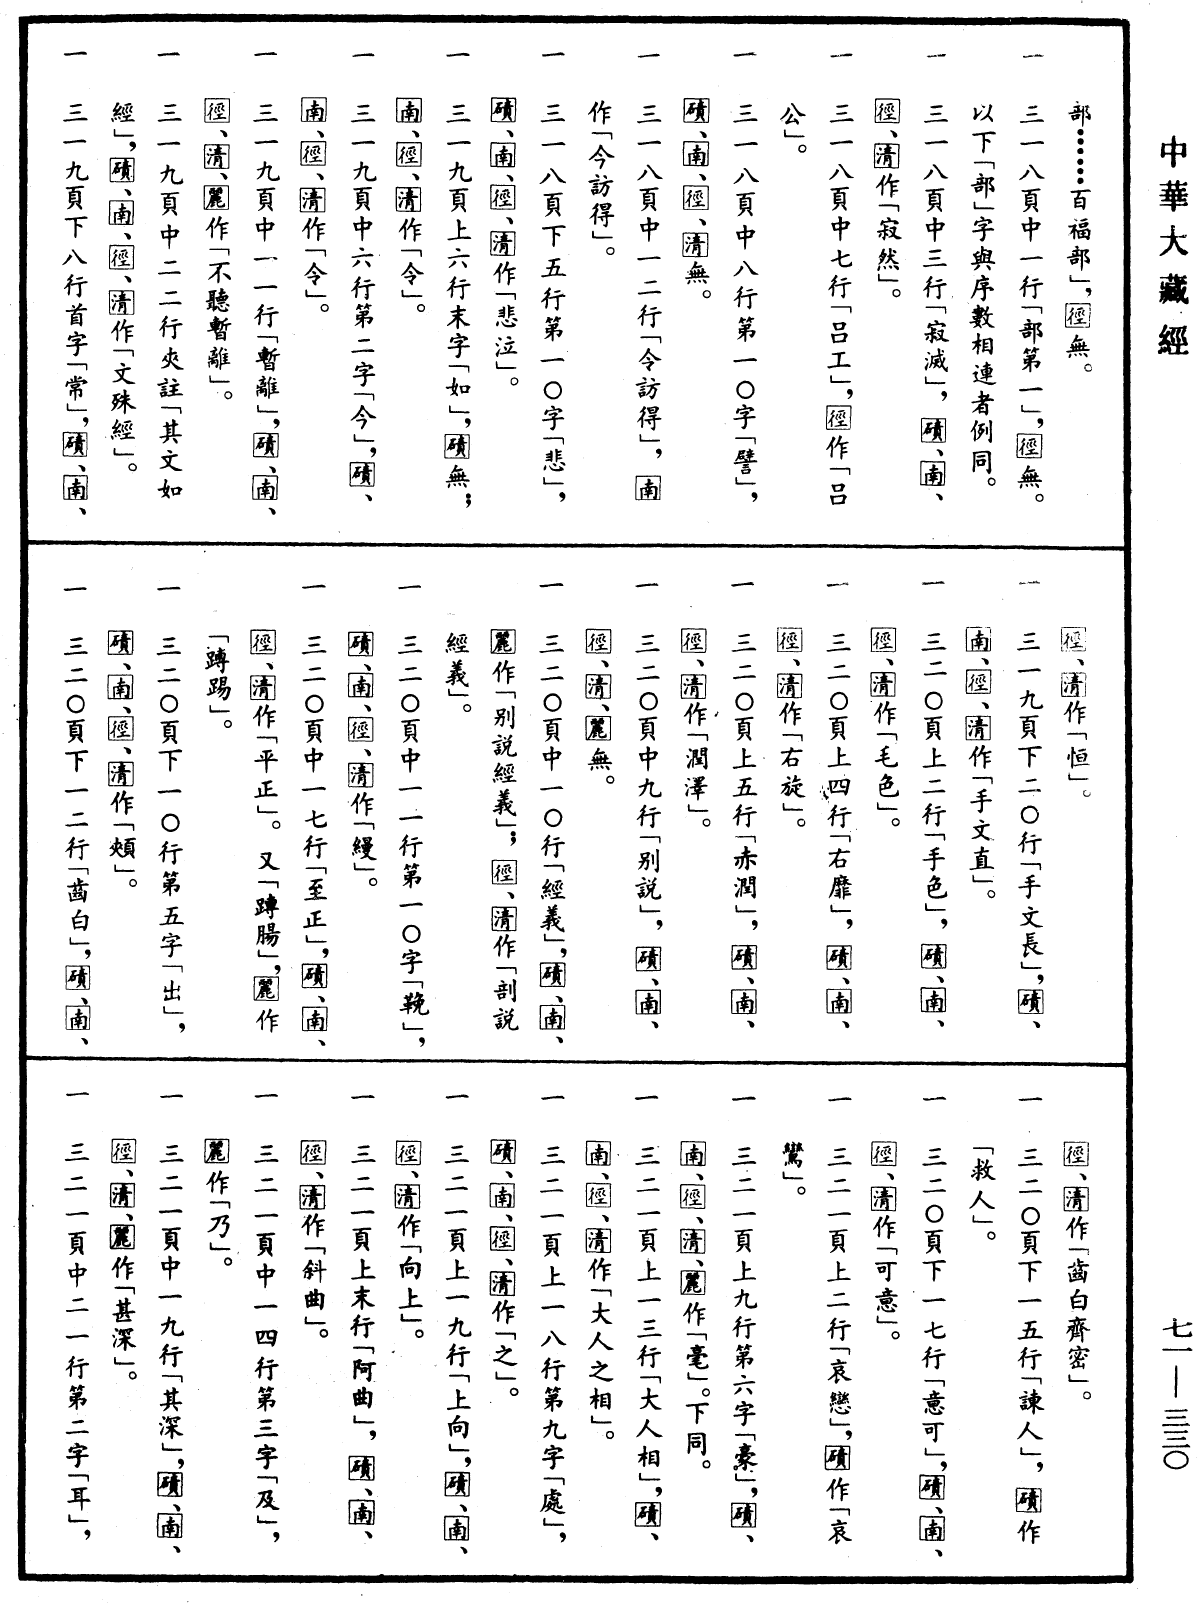 中華大藏經
七一—三三〇
部……百福部」，徑無。
一 三一八頁中一行「部第一」，徑無。
以下「部」字與序數相連者例同。
一 三一八頁中三行「寂滅」，磧、南、
徑、清作「寂然」。
一 三一八頁中七行「呂工」，徑作「呂
公」。
一 三一八頁中八行第一〇字「譬」，
磧、南、徑、清無。
一 三一八頁中一二行「令訪得」，南
作「今訪得」。
一 三一八頁下五行第一〇字「悲」，
磧、南、徑、清作「悲泣」。
一 三一九頁上六行末字「如」，磧無；
南、徑、清作「令」。
一 三一九頁中六行第二字「今」，磧、
南、徑、清作「令」。
一 三一九頁中一一行「暫離」，磧、南、
徑、清、麗作「不聽暫離」。
一 三一九頁中二二行夾註「其文如
經」，磧、南、徑、清作「文殊經」。
一 三一九頁下八行首字「常」，磧、南、
徑、清作「恒」。
一 三一九頁下二〇行「手文長」，磧、
南、徑、清作「手文直」。
一 三二〇頁上二行「手色」，磧、南、
徑、清作「毛色」。
一 三二〇頁上四行「右靡」，磧、南、
徑、清作「右旋」。
一 三二〇頁上五行「赤潤」，磧、南、
徑、清作「潤澤」。
一 三二〇頁中九行「別說」，磧、南、
徑、清、麗無。
一 三二〇頁中一〇行「經義」，磧、南、
麗作「別說經義」；徑、清作「剖說
經義」。
一 三二〇頁中一一行第一〇字「鞔」，
磧、南、徑、清作「縵」。
一 三二〇頁中一七行「至正」，磧、南、
徑、清作「平正」。又「蹲腸」，麗作
「蹲踢」。
一 三二〇頁下一〇行第五字「出」，
磧、南、徑、清作「頰」。
一 三二〇頁下一二行「齒白」，磧、南、
徑、清作「齒白齊密」。
一 三二〇頁下一五行「諫人」，磧作
「救人」。
一 三二〇頁下一七行「意可」，磧、南、
徑、清作「可意」。
一 三二一頁上二行「哀戀」，磧作「哀
鸞」。
一 三二一頁上九行第六字「豪」，磧、
南、徑、清、麗作「毫」。下同。
一 三二一頁上一三行「大人相」，磧、
南、徑、清作「大人之相」。
一 三二一頁上一八行第九字「處」，
磧、南、徑、清作「之」。
一 三二一頁上一九行「上向」，磧、南、
徑、清作「向上」。
一 三二一頁上末行「阿曲」，磧、南、
徑、清作「斜曲」。
一 三二一頁中一四行第三字「及」，
麗作「乃」。
一 三二一頁中一九行「其深」，磧、南、
徑、清、麗作「甚深」。
一 三二一頁中二一行第二字「耳」，